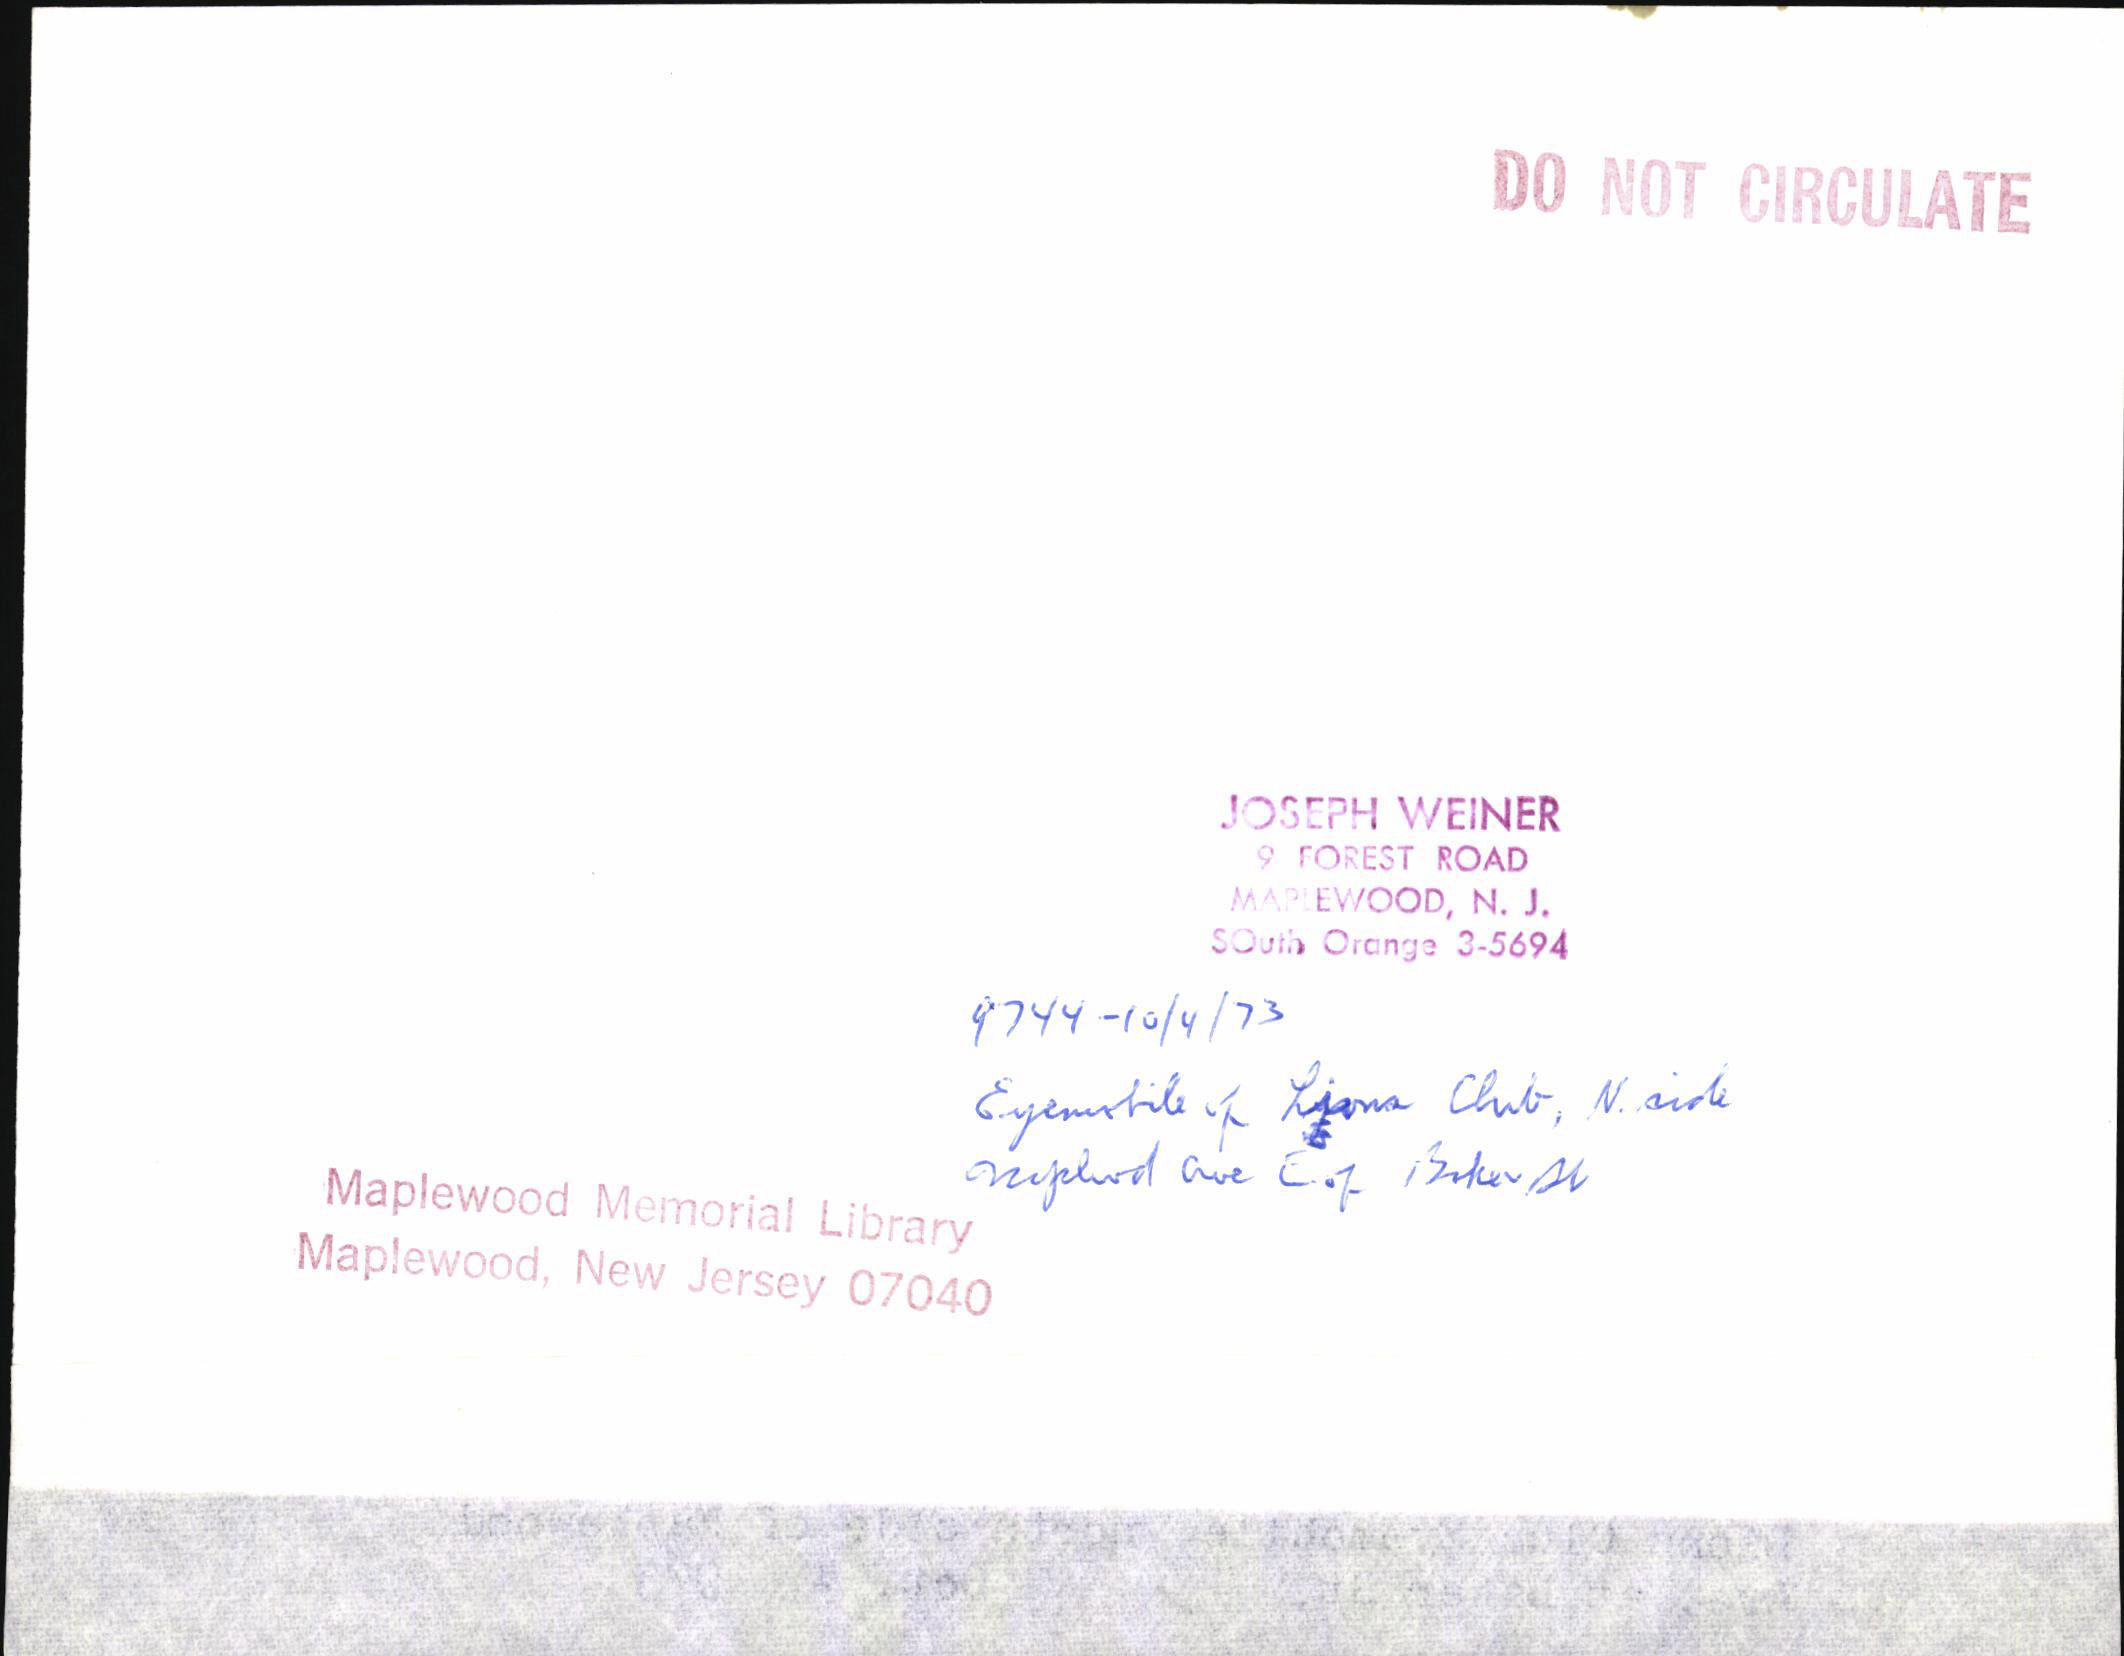 DO NOT CIRCULATE
JOSEPH WEINER
9 FOREST ROAD
MAPLEWOOD, N. J.
SOuth Orange 3-5694
9744-10/4/73
Eyemobile of Lions Club, N. side
Maplwd Ave E of Baker St
Maplewood Memorial Library
Maplewood, New Jersey 07040